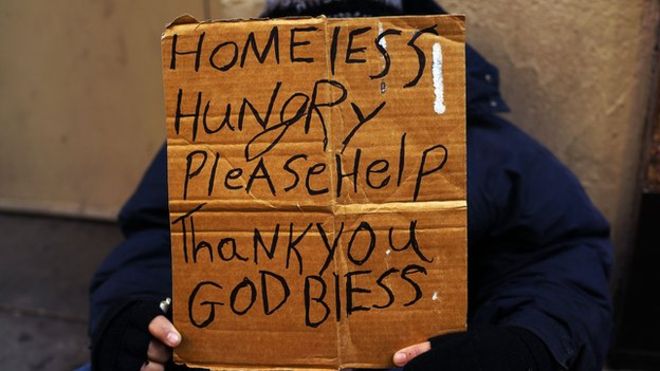 HOMElESS
HUNgRy
PleASeHelp
ThANKyOU
GOD BlESS